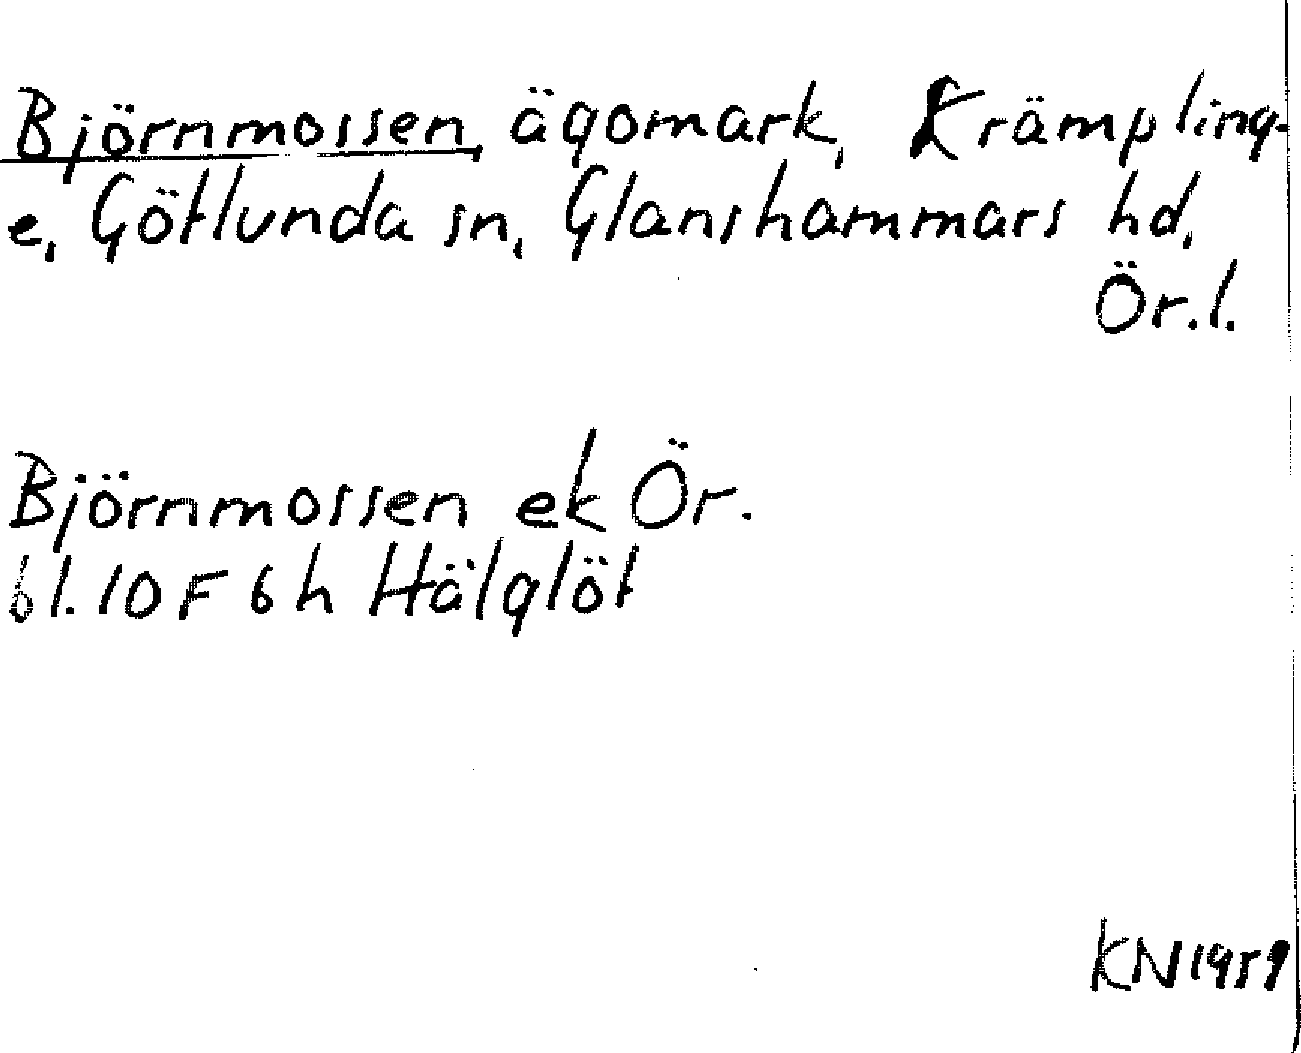 Björnmossen, ägomark, Krämpling-
e, Götlunda sn, Glanshammars hd,
Ör.l.
Björnmossen ek Ör.
bl. 10 F 6 h Hälglöt
KN 1959